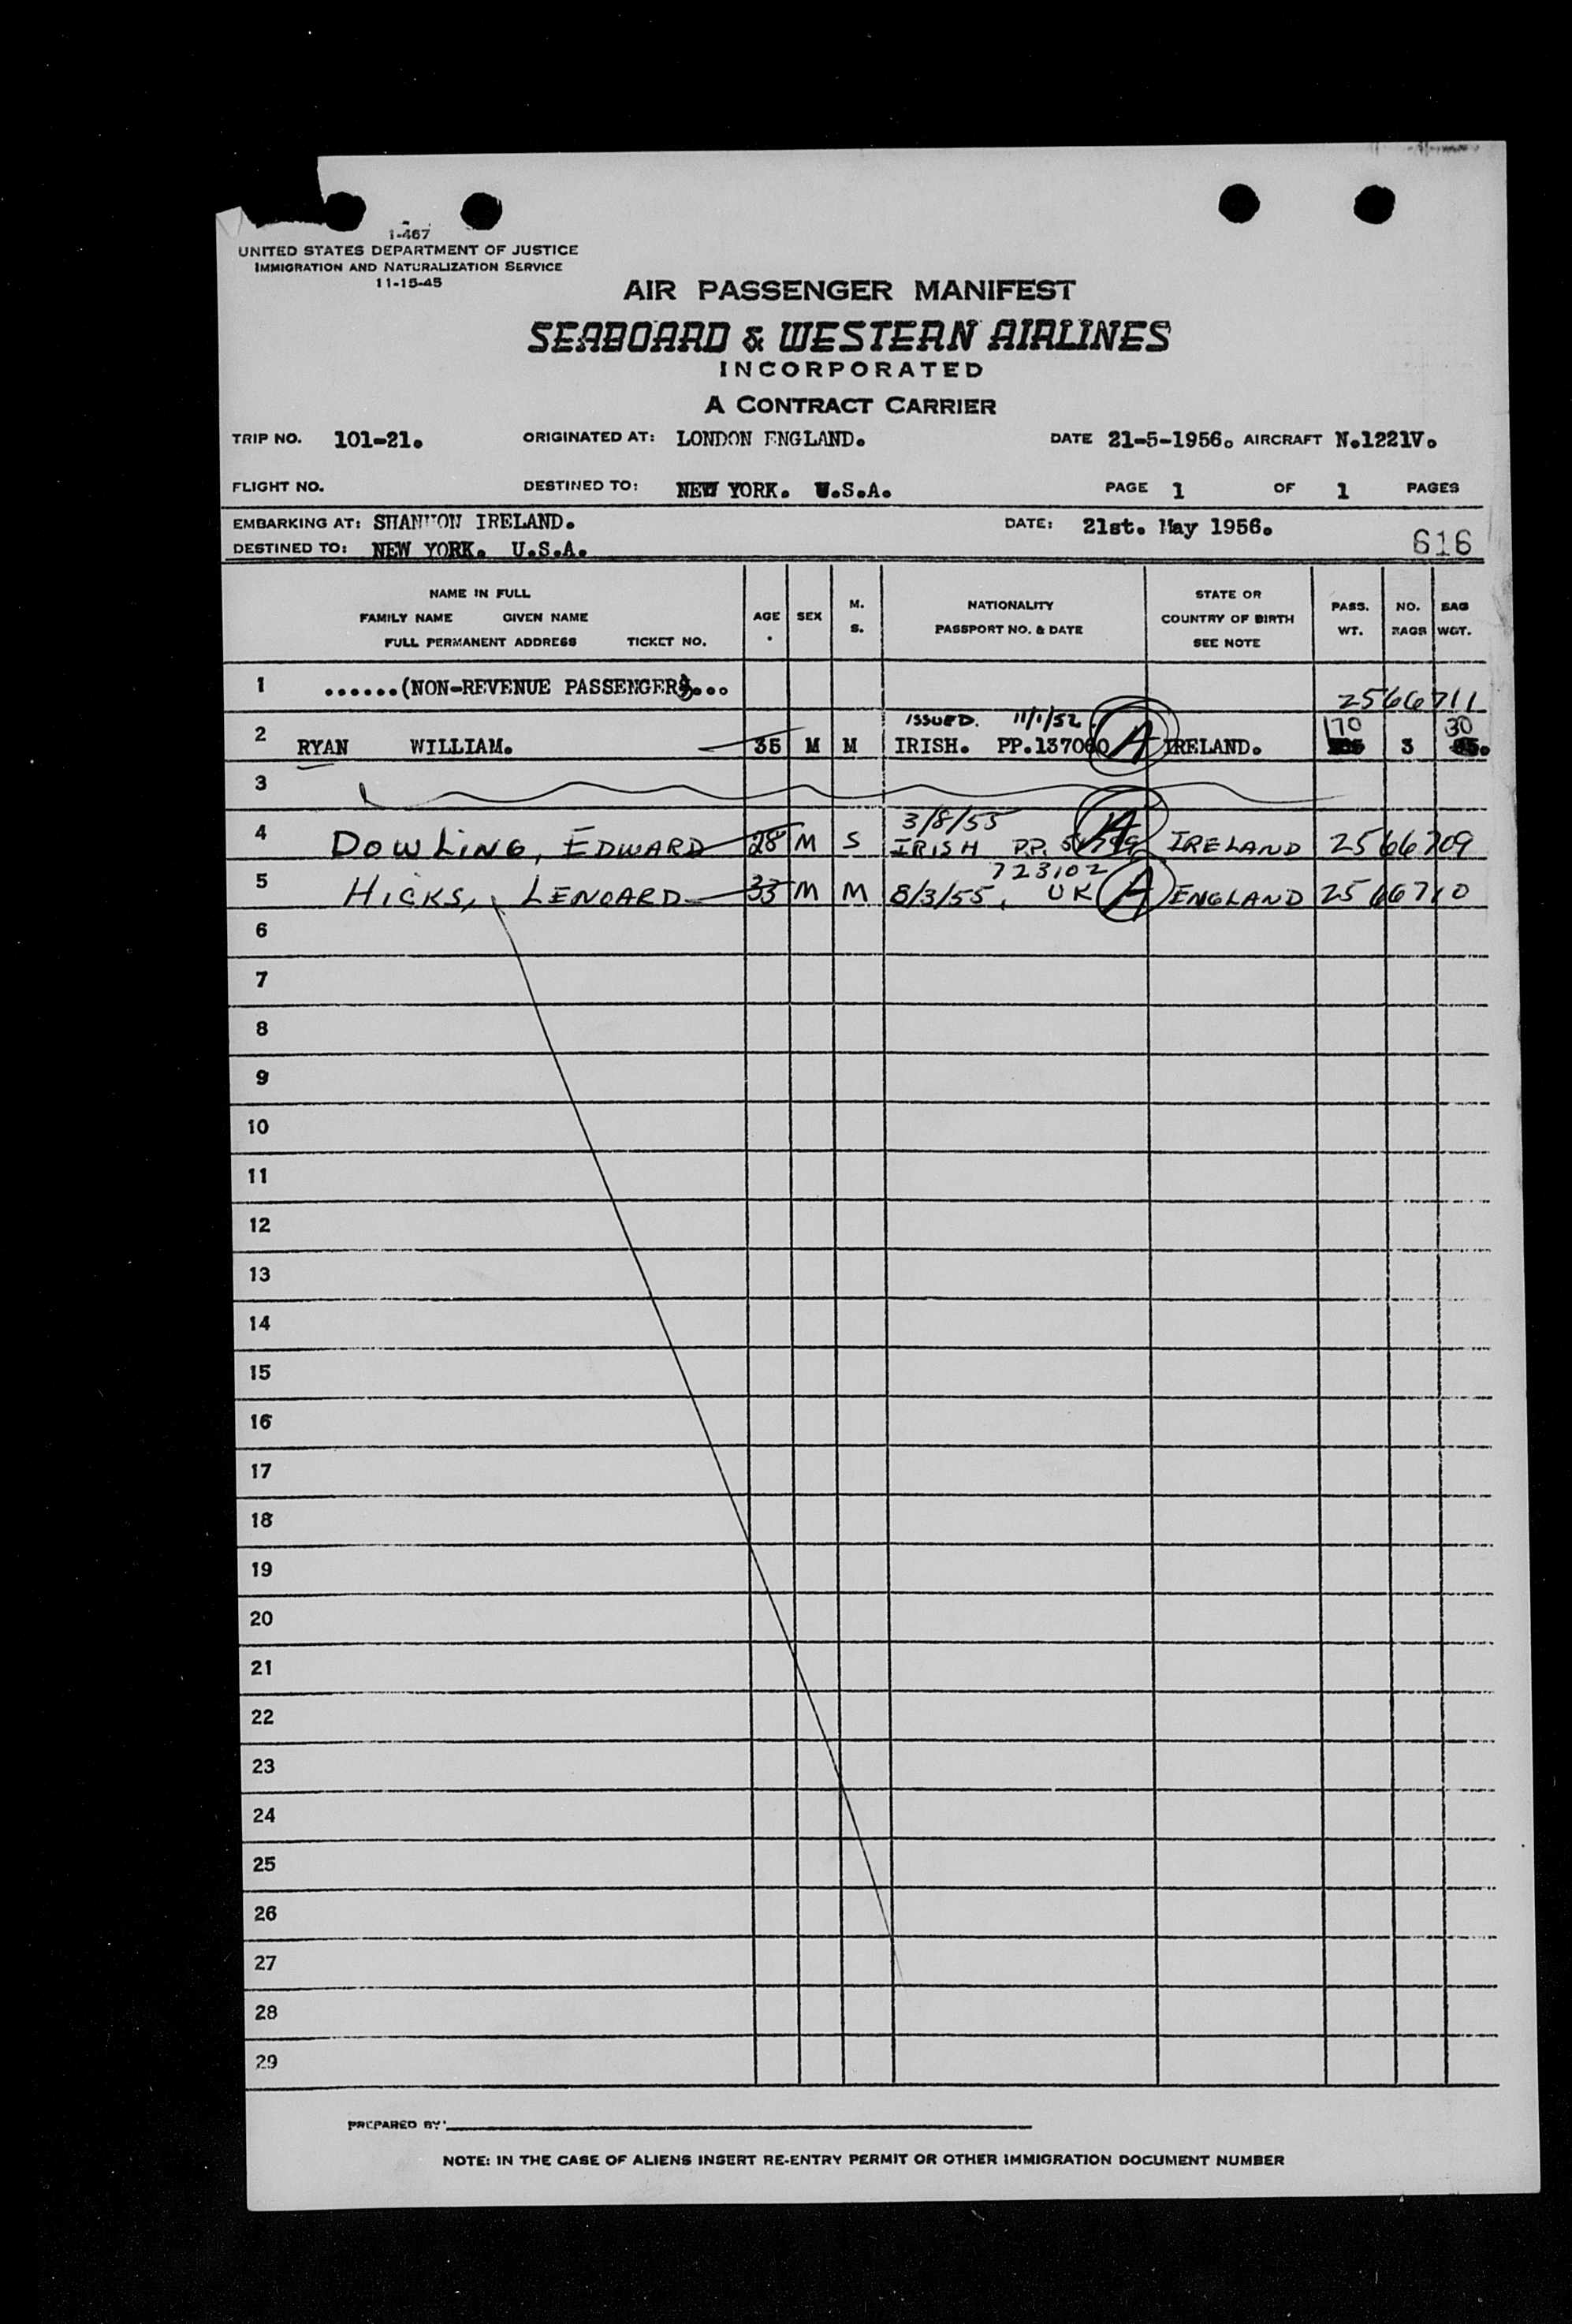 1-467
UNITED STATES DEPARTMENT OF JUSTICE
IMMIGRATION AND NATURALIZATION SERVICE
11-15-45
AIR PASSENGER MANIFEST
SEABOARD & WESTERN AIRLINES
INCORPORATED
A CONTRACT CARRIER
TRIP NO. 101-21. ORIGINATED AT: LONDON ENGLAND. DATE 21-5-1956. AIRCRAFT N.1221V.
FLIGHT NO. DESTINED TO: NEW YORK. U.S.A. PAGE 1 OF 1 PAGES
EMBARKING AT: SHANNON IRELAND. DATE: 21st. May 1956.
DESTINED TO: NEW YORK. U.S.A. 616
NAME IN FULL
FAMILY NAME GIVEN NAME
FULL PERMANENT ADDRESS TICKET NO.
AGE
SEX
M.
S.
NATIONALITY
PASSPORT NO. & DATE
STATE OR
COUNTRY OF BIRTH
SEE NOTE
PASS.
WT.
NO.
BAGS
BAG
WGT.
1 ......(NON-REVENUE PASSENGERS)... 2566711
ISSUED. 11/1/52 170 30
2 RYAN WILLIAM. 35 M M IRISH. PP.137060 A IRELAND. 3
3
3/8/55
4 DOWLING, EDWARD 28 M S IRISH P.P. A IRELAND 2566709
723102
5 HICKS, LENOARD 33 M M 8/3/55, UK A ENGLAND 2566710
6
7
8
9
10
11
12
13
14
15
16
17
18
19
20
21
22
23
24
25
26
27
28
29
PREPARED BY:
NOTE: IN THE CASE OF ALIENS INSERT RE-ENTRY PERMIT OR OTHER IMMIGRATION DOCUMENT NUMBER